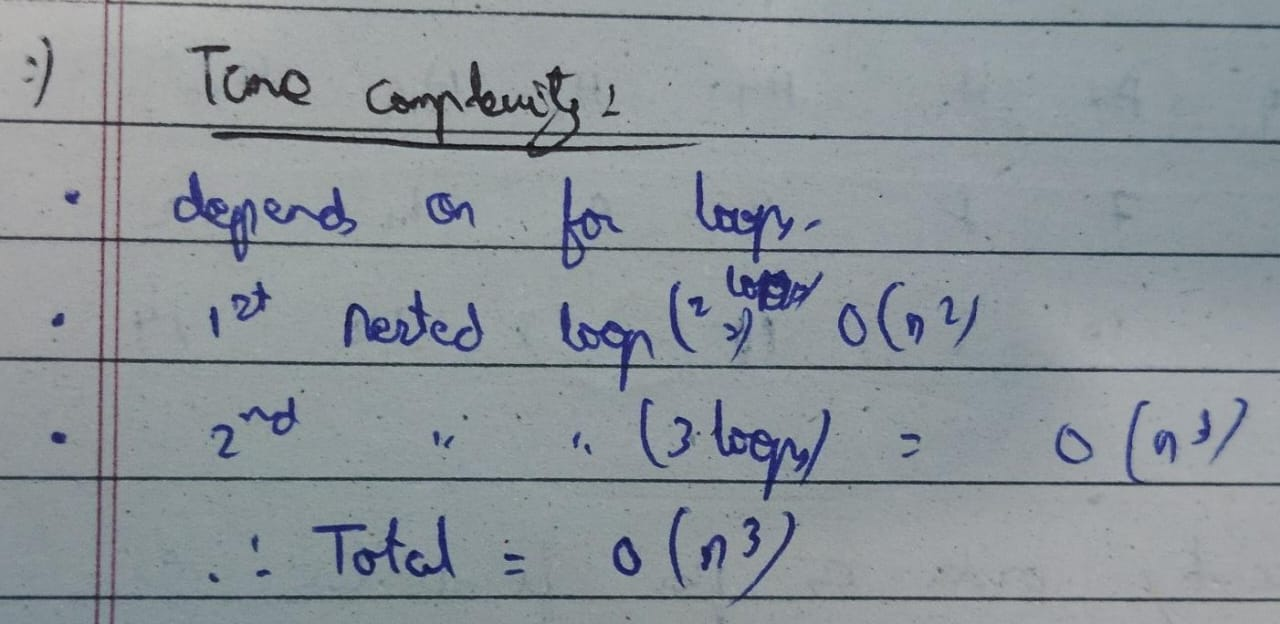 :) Time complexity :
• depends on for loops.
• 1st nested loop (2 loops) = O(n²)
• 2nd " " (3 loops) = O(n³)
∴ Total = O(n³)